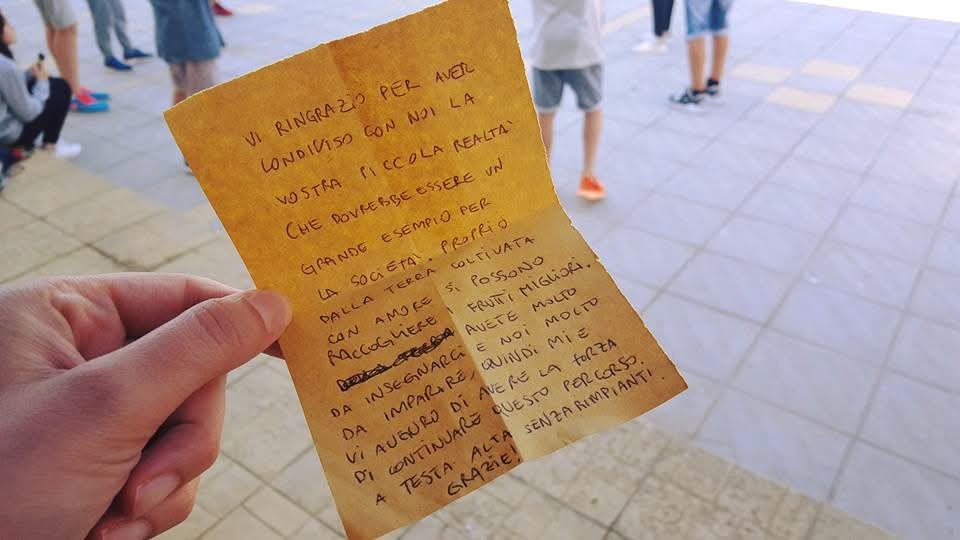 VI RINGRAZIO PER AVER
CONDIVISO CON NOI LA
VOSTRA PICCOLA REALTA'
CHE DOVREBBE ESSERE UN
GRANDE ESEMPIO PER
LA SOCIETA'. PROPRIO
DALLA TERRA COLTIVATA
CON AMORE SI POSSONO
RACCOGLIERE FRUTTI MIGLIORI.
AVETE MOLTO
DA INSEGNARCI E NOI MOLTO
DA IMPARARE, QUINDI MI E
VI AUGURO DI AVERE LA FORZA
DI CONTINUARE QUESTO PERCORSO.
A TESTA ALTA SENZA RIMPIANTI.
GRAZIE!